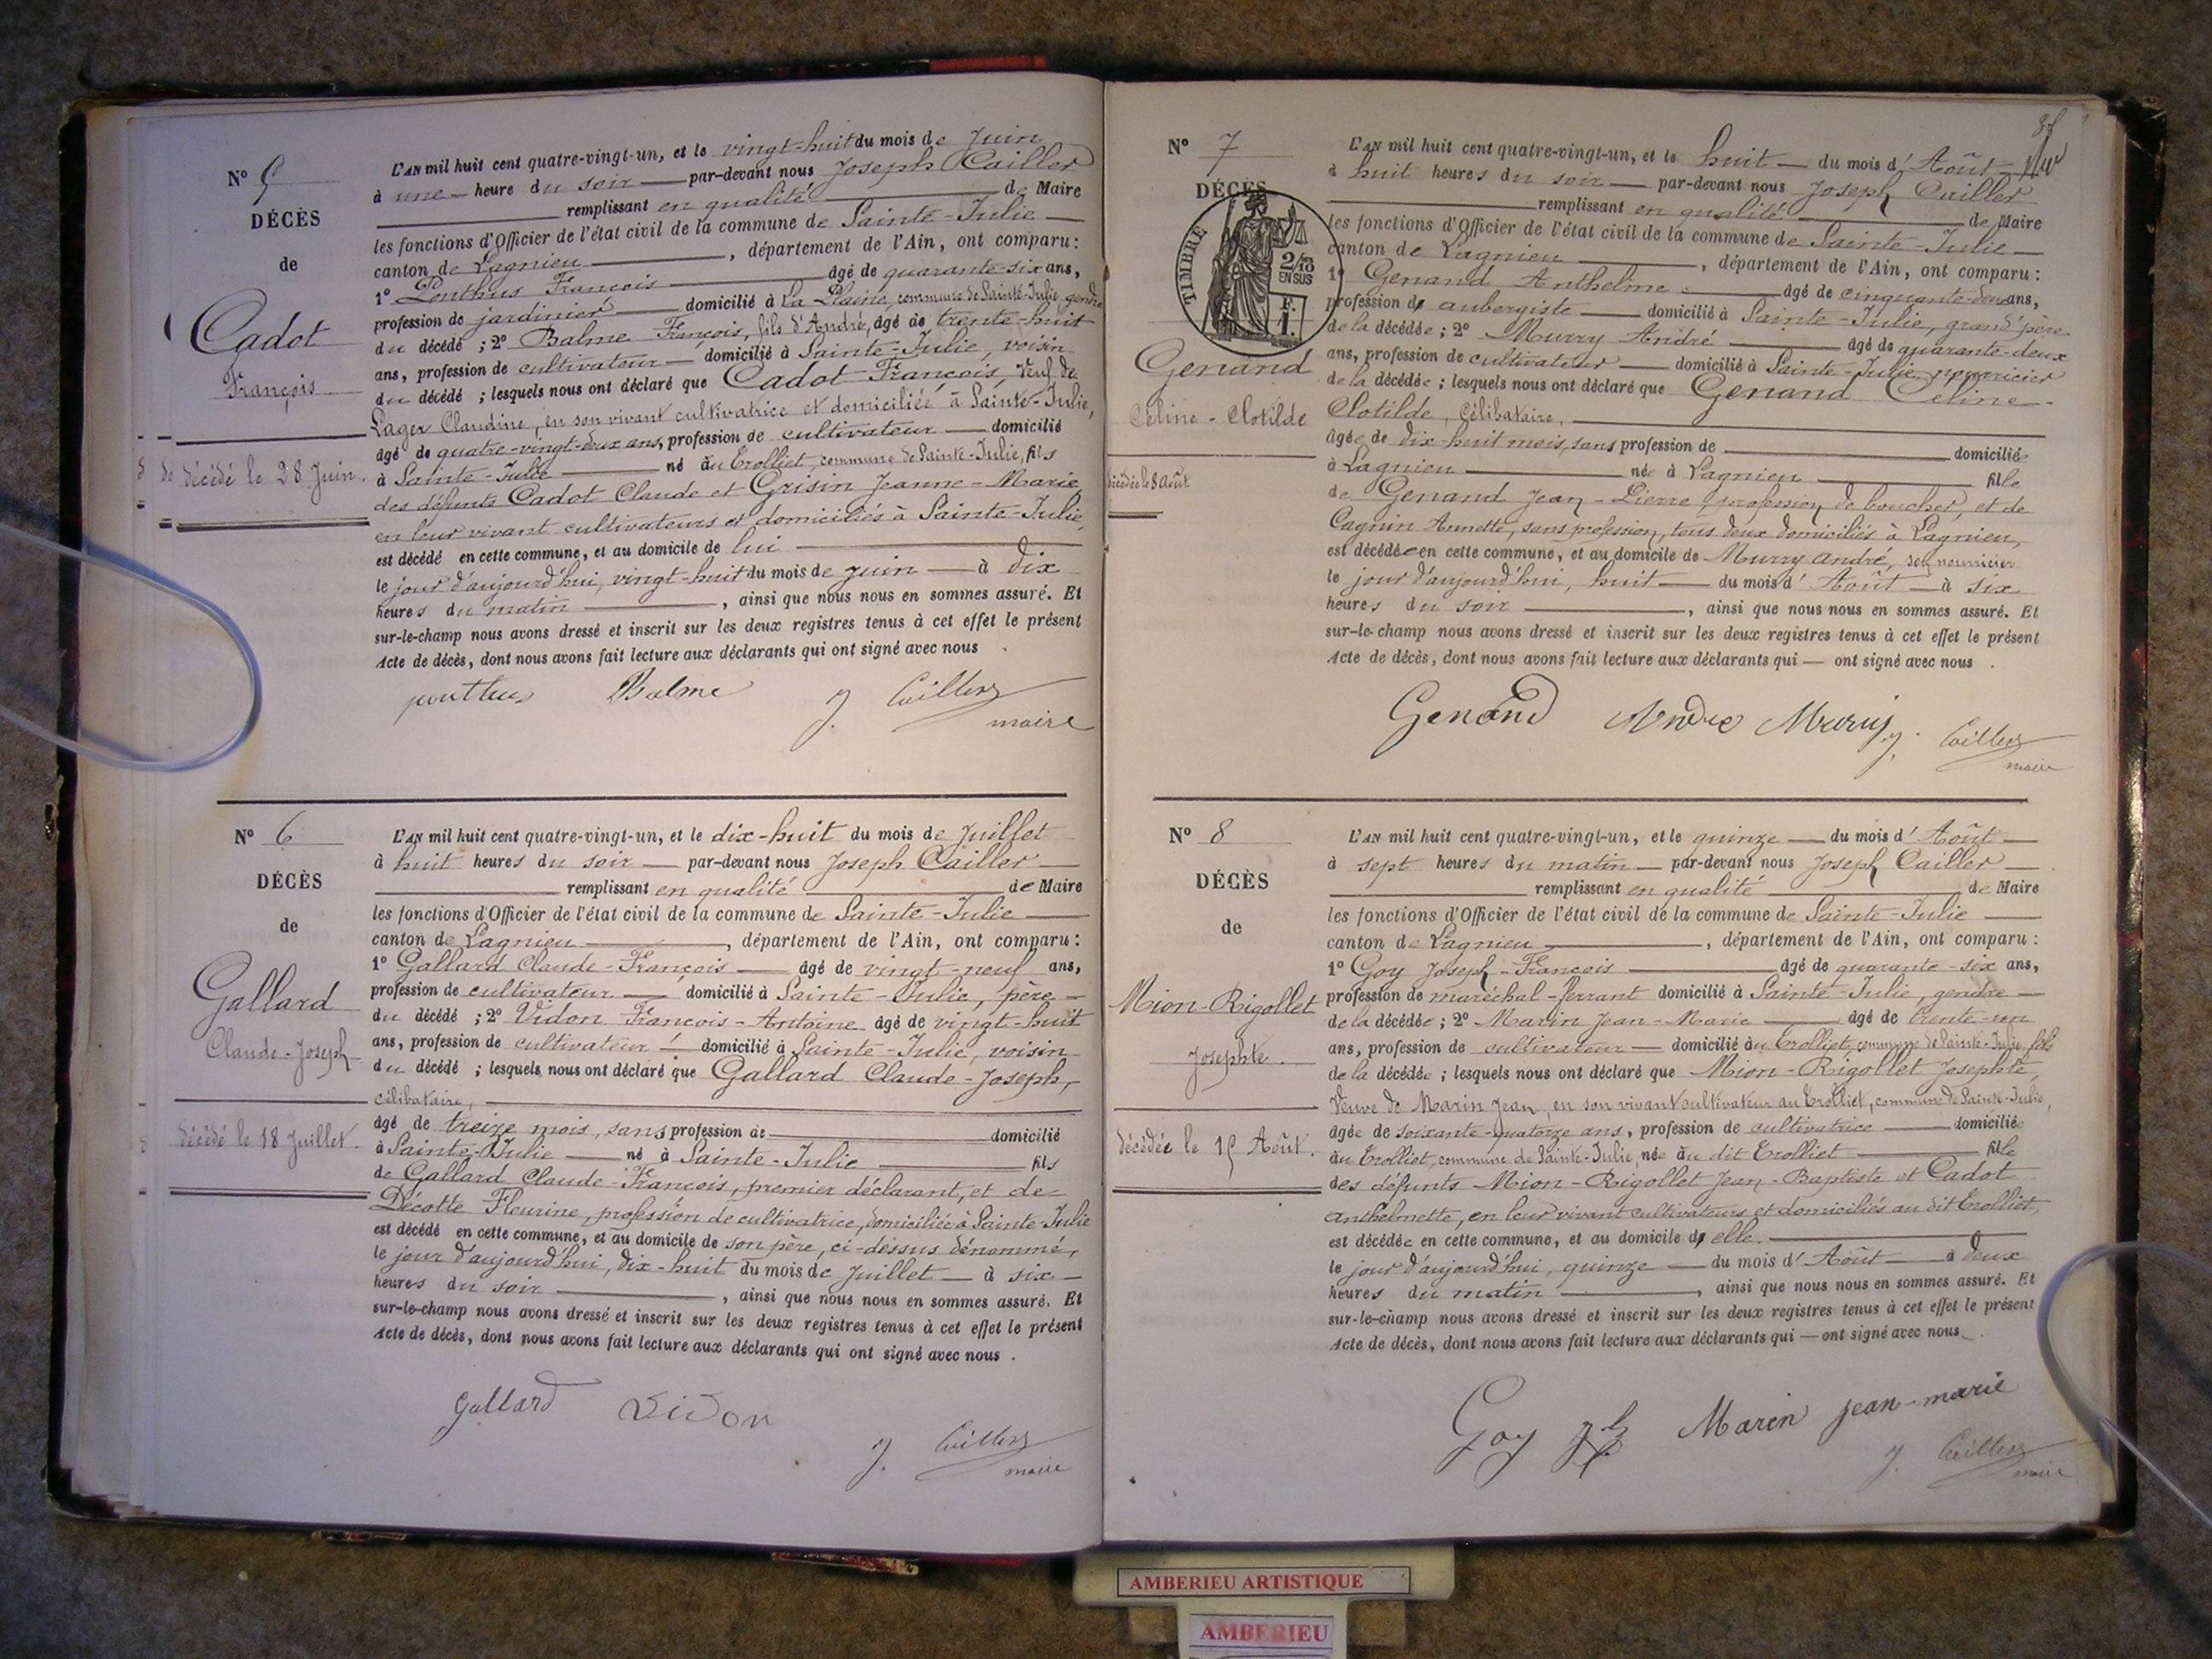 Nº 5
DÉCÈS
de
Cadot
François
décédé le 28 Juin.
L'AN mil huit cent quatre-vingt-un, et le vingt-huit du mois de Juin
à une heure du soir par-devant nous Joseph Cailler
remplissant en qualité de Maire
les fonctions d'Officier de l'état civil de la commune de Sainte-Julie
canton de Lagnieu, département de l'Ain, ont comparu:
1º Ponthus François âgé de quarante-six ans,
profession de jardinier domicilié à La Plaine, commune de Sainte-Julie gendre
du décédé ; 2º Balme François, fils d'André, âgé de trente-huit
ans, profession de cultivateur domicilié à Sainte-Julie, voisin
du décédé ; lesquels nous ont déclaré que Cadot François, veuf de
Lager Claudine, en son vivant cultivatrice et domiciliée à Sainte-Julie,
âgé de quatre-vingt-deux ans, profession de cultivateur domicilié
à Sainte-Julie né au Trolliet, commune de Sainte-Julie, fils
des défunts Cadot Claude et Grisin Jeanne-Marie,
en leur vivant cultivateurs et domiciliés à Sainte-Julie,
est décédé en cette commune, et au domicile de lui
le jour d'aujourd'hui, vingt-huit du mois de juin à dix
heures du matin, ainsi que nous nous en sommes assuré. Et
sur-le-champ nous avons dressé et inscrit sur les deux registres tenus à cet effet le présent
Acte de décès, dont nous avons fait lecture aux déclarants qui ont signé avec nous .
ponthus Balme J. Cailler
maire
Nº 6
DÉCÈS
de
Gallard
Claude-Joseph
décédé le 18 Juillet.
L'AN mil huit cent quatre-vingt-un, et le dix-huit du mois de Juillet
à huit heures du soir par-devant nous Joseph Cailler
remplissant en qualité de Maire
les fonctions d'Officier de l'état civil de la commune de Sainte-Julie
canton de Lagnieu, département de l'Ain, ont comparu:
1º Gallard Claude-François âgé de vingt-neuf ans,
profession de cultivateur domicilié à Sainte-Julie, père
du décédé ; 2º Vidon François-Antoine âgé de vingt-huit
ans, profession de cultivateur domicilié à Sainte-Julie, voisin
du décédé ; lesquels nous ont déclaré que Gallard Claude-Joseph,
célibataire,
âgé de treize mois, sans profession de domicilié
à Sainte-Julie né à Sainte-Julie fils
de Gallard Claude-François, premier déclarant, et de
Décotte Fleurine, profession de cultivatrice, domiciliée à Sainte-Julie
est décédé en cette commune, et au domicile de son père, ci-dessus dénommé,
le jour d'aujourd'hui, dix-huit du mois de Juillet à six
heures du soir, ainsi que nous nous en sommes assuré. Et
sur-le-champ nous avons dressé et inscrit sur les deux registres tenus à cet effet le présent
Acte de décès, dont nous avons fait lecture aux déclarants qui ont signé avec nous .
Gallard Vidon
J. Cailler
maire
Nº 7
DÉCÈS
TIMBRE
2/10
EN SUS
F.
1.
Genand
Céline-Clotilde
décédée le 8 août
L'AN mil huit cent quatre-vingt-un, et le huit du mois d'Août
à huit heures du soir par-devant nous Joseph Cailler
remplissant en qualité de Maire
les fonctions d'Officier de l'état civil de la commune de Sainte-Julie
canton de Lagnieu, département de l'Ain, ont comparu:
1º Genand Anthelme âgé de cinquante-deux ans,
profession d'aubergiste domicilié à Sainte-Julie, grand'père
de la décédée ; 2º Murry André âgé de quarante-deux
ans, profession de cultivateur domicilié à Sainte-Julie, nourricier
de la décédée ; lesquels nous ont déclaré que Genand Céline-
Clotilde, célibataire,
âgée de dix-huit mois, sans profession de domiciliée
à Lagnieu née à Lagnieu fille
de Genand Jean-Pierre, profession de boucher, et de
Cagnin Annette, sans profession, tous deux domiciliés à Lagnieu,
est décédée en cette commune, et au domicile de Murry André, son nourricier
le jour d'aujourd'hui, huit du mois d'Août à six
heures du soir, ainsi que nous nous en sommes assuré. Et
sur-le-champ nous avons dressé et inscrit sur les deux registres tenus à cet effet le présent
Acte de décès, dont nous avons fait lecture aux déclarants qui ont signé avec nous .
Genand André Murry J. Cailler
maire
Nº 8
DÉCÈS
de
Mion-Rigollet
Josephte.
décédée le 15 Août.
L'AN mil huit cent quatre-vingt-un, et le quinze du mois d'Août
à sept heures du matin par-devant nous Joseph Cailler
remplissant en qualité de Maire
les fonctions d'Officier de l'état civil de la commune de Sainte-Julie
canton de Lagnieu, département de l'Ain, ont comparu:
1º Goy Joseph-François âgé de quarante-six ans,
profession de maréchal-ferrant domicilié à Sainte-Julie, gendre
de la décédée ; 2º Marin Jean-Marie âgé de trente-un
ans, profession de cultivateur domicilié au Trolliet, commune de Sainte-Julie, fils
de la décédée ; lesquels nous ont déclaré que Mion-Rigollet Josephte,
Veuve de Marin Jean, en son vivant cultivateur au Trolliet, commune de Sainte-Julie,
âgée de soixante-quatorze ans, profession de cultivatrice domiciliée
au Trolliet, commune de Sainte-Julie, née au dit Trolliet fille
des défunts Mion-Rigollet Jean-Baptiste et Cadot
Anthelmette, en leur vivant cultivateurs et domiciliés au dit Trolliet,
est décédée en cette commune, et au domicile d'elle.
le jour d'aujourd'hui, quinze du mois d'Août à deux
heures du matin, ainsi que nous nous en sommes assuré. Et
sur-le-champ nous avons dressé et inscrit sur les deux registres tenus à cet effet le présent
Acte de décès, dont nous avons fait lecture aux déclarants qui ont signé avec nous .
Goy Marin jean-marie
J. Cailler
maire
AMBERIEU ARTISTIQUE
AMBERIEU